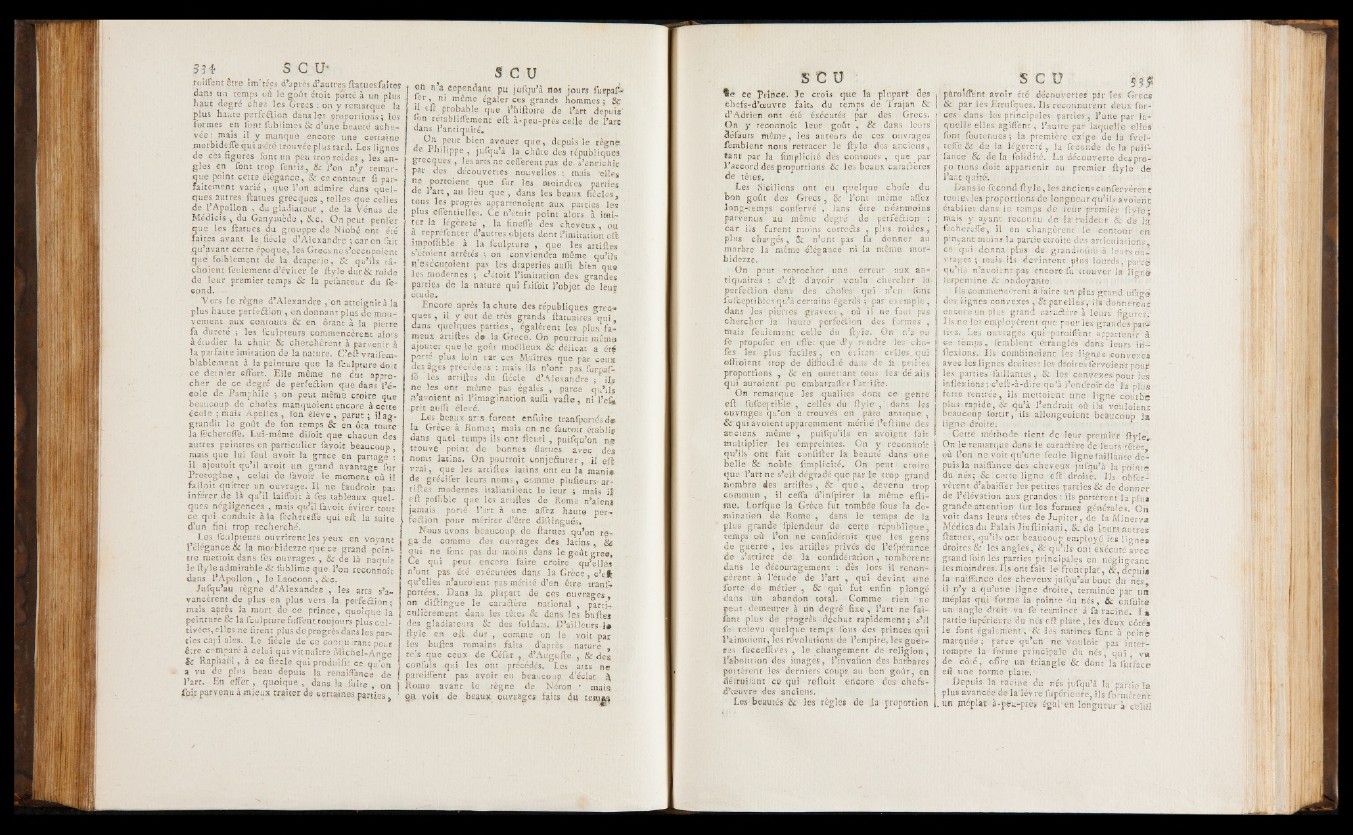 534 S C U
roissent être imitées d'après d'autres statues faites
dans un temps où le goût étoit porté à un plus
haut degré chez les Grecs : on y remarque la
plus haute perfection dans les proportions ; les
formes en sont sublimes & d'une beauté ache-
vée : mais il y manque encore une certaine
morbidesse qui a été trouvée plus tard. Les lignes
de ces figures sont un peu trop roides, les an-
gles en sont trop sentis, & l'on n'y remar-
que point cette élégance, & ce contour si par-
faitement varié, que l'on admire dans quel-
ques autres statues grecques, telles que celles
de l'Apollon, du gladiateur, de la Vénus de
Médicis, du Ganymède, &c. On peut penser
que les statues du grouppe de Niobé ont été
faites avant le siècle d'Alexandre ; car on sait
qu'avant cette époque, les Grecs ne s'occupoient
que foiblement de la draperie, & qu'ils tâ-
choient seulement d'éviter le style dur & roide
de leur premier temps & la pesanteur du se-
cond.
Vers le règne d'Alexandre, on atteignit à la
plus haute perfection, en donnant plus de mou-
vement aux contours & en ôtant à la pierre
sa dureté ; les sculpteurs commencèrent alors
à étudier la chair & cherchèrent à parvenir à
la parfaite imitation de la nature. C'est vraisem-
blablement à la peinture que la sculpture doit
ce dernier effort. Elle même ne fut appro-
cher de ce degré de perfection que dans l'é-
cole de Pamphile ; on peut même croire que
beaucoup de choses manquoient encore à cette
école ; mais Apelles, son élève, parut ; il ag-
grandit le goût de son temps & en ôta toute
la sécheresse. Lui-même disoit que chacun des
autres peintres en particulier savoit beaucoup,
mais que lui seul avoit la grace en partage :
il ajoutoit qu'il avoit un grand avantage sur
Protogène, celui de savoir le moment où il
falloit quitter un ouvrage. Il ne faudroit pas
inférer de là qu'il laissoit à ses tableaux quel-
ques négligences, mais qu'il savoit éviter tout
ce qui conduit à la sécheresse qui est la suite
d'un fini trop recherché.
Les sculpteurs ouvrirent les yeux en voyant
l'élégance & la morbidezze que ce grand pein-
tre mettoit dans ses ouvrages, & de là naquit
le style admirable & sublime que l'on reconnoît
dans l'Apollon, le Laocoon, &c.
Jusqu'au règne d'Alexandre, les arts s'a-
vancèrent de plus en plus vers la perfection ;
mais après la mort de ce prince, quoique la
peinture & la sculpture fussent toujours plus cul-
tivées, elles ne firent plus de progrès dans les par-
ties capitales. Le siècle de ce conquérant peut
être comparé à celui qui vit naître Michel-Ange
& Raphaël, à ce siècle qui produisit ce qu'on
a vu de plus beau depuis la renaissance de
l'art. En effet, quoique, dans la suite, on
soit parvenu à mieux traiter de certaines parties,
S C U
on n'a cependant pu jusqu'à nos jours surpas-
ser, ni même égaler ces grands hommes ; &
il est probable que l'histoire de l'art depuis
son rétablissement est à-peu-près celle de l'art
dans l'antiquité.
On peut bien avouer que, depuis le règne
de Philippe, jusqu'à la chûte des républiques
grecques, les arts ne cessèrent pas de s'enrichir
par des découvertes nouvelles : mais elles
ne portoient que sur les moindres parties
de l'art, au lieu que, dans les beaux siècles,
tous les progrès appartenoient aux parties les
plus essentielles. Ce n'étoit point alors à imi-
ter la légèreté, la finesse des cheveux, ou
à représenter d'autres objets dont l'imitation est
impossible à la sculpture, que les artistes
s'étoient arrêtés ; on conviendra même qu'ils
n'exécutoient pas les draperies aussi bien que
les modernes ; c'étoit l'imitation des grandes
parties de la nature qui faisoit l'objet de leur
étude.
Encore après la chute des républiques grec-
ques, il y eut de très grands statuaires qui,
dans quelques parties, égalèrent les plus fa-
meux artistes de la Grèce. On pourroit même
ajouter que le goût moëlleux & délicat a été
porté plus loin par ces Maîtres que par ceux
des âges précédens : mais ils n'ont pas surpas-
sé les artistes du siècle d'Alexandre ; ils
ne les ont même pas égalés, parce qu'ils
n'avoient ni l'imagination aussi vaste, ni l'es-
prit aussi élevé.
Les beaux arts furent ensuite transportés de
la Grèce à Rome ; mais on ne sauroit établir
dans quel temps ils ont fleuri, puisqu'on ne
trouve point de bonnes statues avec des
noms latins. On pourroit conjecturer, il est
vrai, que les artistes latins ont eu la manie
de gréciser leurs noms, comme plusieurs ar-
tistes modernes italianisent le leur ; mais il
est possible que les artistes de Rome n'aient
jamais porté l'art à une assez haute per-
fection pour mériter d'être distingués.
Nous avons beaucoup de statues qu'on re-
garde comme des ouvrages des latins, &
qui ne sont pas du moins dans le goût grec.
Ce qui peut encore faire croire qu'elles
n'ont pas été exécutées dans la Grèce, c'est
qu'elles n'auroient pas mérité d'en être trans-
portées. Dans la plupart de ces ouvrages,
on distingue le caractère national, parti-
culièrement dans les têtes & dans les bustes
des gladiateurs & des soldats. D'ailleurs le
style en est dur, comme on le voit par
les bustes romains faits d'après nature,
tels que ceux de César, d'Auguste, & des
consuls qui les ont précédés. Les arts ne
paroissent pas avoir eu beaucoup d'éclat à
Rome avant le règne de Néron : mais
on voit de beaux ouvrages faits du temps
S C U
de ce Prince. Je crois que la plupart des
chefs-d'œuvre faits du temps de Trajan &
d'Adrien ont été exécutés par des Grecs.
On y reconnoît leur goût, & dans leurs
défauts même, les auteurs de ces ouvrages
semblent nous retracer le style des anciens,
tant par la simplicité des contours, que par
l'accord des proportions & les beaux caractères
de têtes.
Les Siciliens ont eu quelque chose du
bon goût des Grecs, & l'ont même assez
long-temps conservé, sans être néanmoins
parvenus au même degré de perfection :
car ils furent moins corrects, plus roides,
plus chargés, & n'ont pas su donner au
marbre la même élégance ni la même mor-
bidezze.
On peut reprocher une erreur aux an-
tiquaires : c'est d'avoir voulu chercher la
perfection dans des choses qui n'en sont
susceptibles qu'à certains égards ; par exemple,
dans les pierres gravées, où il ne faut pas
chercher la haute perfection des formes,
mais seulement celle du style. On n'a pu
se proposer en effet que d'y rendre les cho-
ses les plus faciles, en évitant celles qui
offroient trop de difficulté dans de si petites
proportions, & en omettant tous les détails
qui auroient pu embarrasser l'artiste.
On remarque les qualités dont ce genre
est susceptible, celles du style, dans les
ouvrages qu'on a trouvés en pâte antique,
& qui avoient apparemment mérité l'estime des
anciens même, puisqu'ils en avoient fait
multiplier les empreintes. On y reconnoît
qu'ils ont fait consister la beauté dans une
belle & noble simplicité. On peut croire
que l'art ne s'est dégradé que par le trop grand
nombre des artistes, & que, devenu trop
commun, il cessa d'inspirer la même esti-
me. Lorsque la Grèce fut tombée sous la do-
mination de Rome, dans le temps de la
plus grande splendeur de cette république,
temps où l'on ne considéroit que les gens
de guerre, les artistes privés de l'espérance
de s'attirer de la considération, tombèrent
dans le découragement : dès lors il renon-
cèrent à l'étude de l'art, qui devint une
sorte de métier, & qui fut enfin plongé
dans un abandon total. Comme rien ne
peut demeurer à un degré fixe, l'art ne fai-
sant plus de progrès déchut rapidement ; s'il
se releva quelque temps sous des princes qui
l'aimoient, les révolutions de l'empire, les guer-
res successives, le changement de religion,
l'abolition des images, l'invasion des barbares
portèrent les derniers coups au bon goût, en
détruisant ce qui restoit encore des chefs-
d'œuvre des anciens.
Les beautés & les règles de la proportion
S C U 535
paroissent avoir été découvertes par les Grecs
& par les Etrusques. Ils reconnurent deux for-
ces dans les principales parties, l'une par la-
quelle elles agissent, l'autre par laquelle elles
sont soutenues ; la première exige de la svel-
tesse & de la légereté, la seconde de la puis-
sance & de la solidité. La découverte des pro-
portions doit appartenir au premier style de
l'antiquité.
Dans le second style, les anciens conservèrent
toutes les proportions de longueur qu'ils avoient
établies dans le temps de leur premier style ;
mais y ayant reconnu de la roideur & de la
sécheresse, il en changèrent le contour en
pinçant moins la partie étroite des articulations,
ce qui donna plus de grandiosité à leurs ou-
vrages ; mais ils devinrent plus lourds, parce
qu'ils n'avoient pas encore su trouver la ligne
serpentine & ondoyante.
Ils commencèrent à faire un plus grand usage
des lignes convexes, & par elles, ils donnèrent
encore un plus grand caractère à leurs figures.
Ils ne les employèrent que pour les grandes par-
ties. Les ouvrages qui paroissent appartenir à
ce temps, semblent étranglés dans leurs in-
flexions. Ils combinoient les lignes convexes
avec les lignes droites : les droites servoient pour
les parties saillantes, & les convexes pour les
inflexions : c'est-à-dire qu'à l'endroit de la plus
forte rentrée, ils mettoient une ligne courbe
plus rapide, & qu'à l'endroit où ils vouloient
beaucoup sortir, ils allongeoient beaucoup la
ligne droite.
Cette méthode tient de leur premier style.
On le remarque dans le caractère de leurs têtes,
où l'on ne voit qu'une seule ligne saillante de-
puis la naissance des cheveux jusqu'à la pointe
du nés ; & cette ligne est droite. Ils obser-
vèrent d'abaisser les petites parties & de donner
de l'élévation aux grandes : ils portèrent la plus
grande attention sur les formes générales. On
voit dans leurs têtes de Jupiter, de la Minerva
Médica du Palais Justiniani, & de leurs autres
statues, qu'ils ont beaucoup employé les lignes
droites & les angles, & qu'ils ont exécuté avec
grand soin les parties principales en négligeant
les moindres. Ils ont fait le front plat, &, depuis
la naissance des cheveux jusqu'au bout du nés,
il n'y a qu'une ligne droite, terminée par un
méplat qui forme la pointe du nés, & ensuite
un angle droit va se terminer à sa racine. La
partie supérieure du nés est plate, les deux côtés
le sont également, & les narines sont à peine
marquées ; parce qu'on ne vouloit pas inter-
rompre la forme principale du nés, qui, vu
de côté, offre un triangle & dont la surface
est une forme plate.
Depuis la racine du nés jusqu'à la partie la
plus avancée de la lèvre supérieure, ils formèrent
un méplat à-peu-près égal en longueur à celui